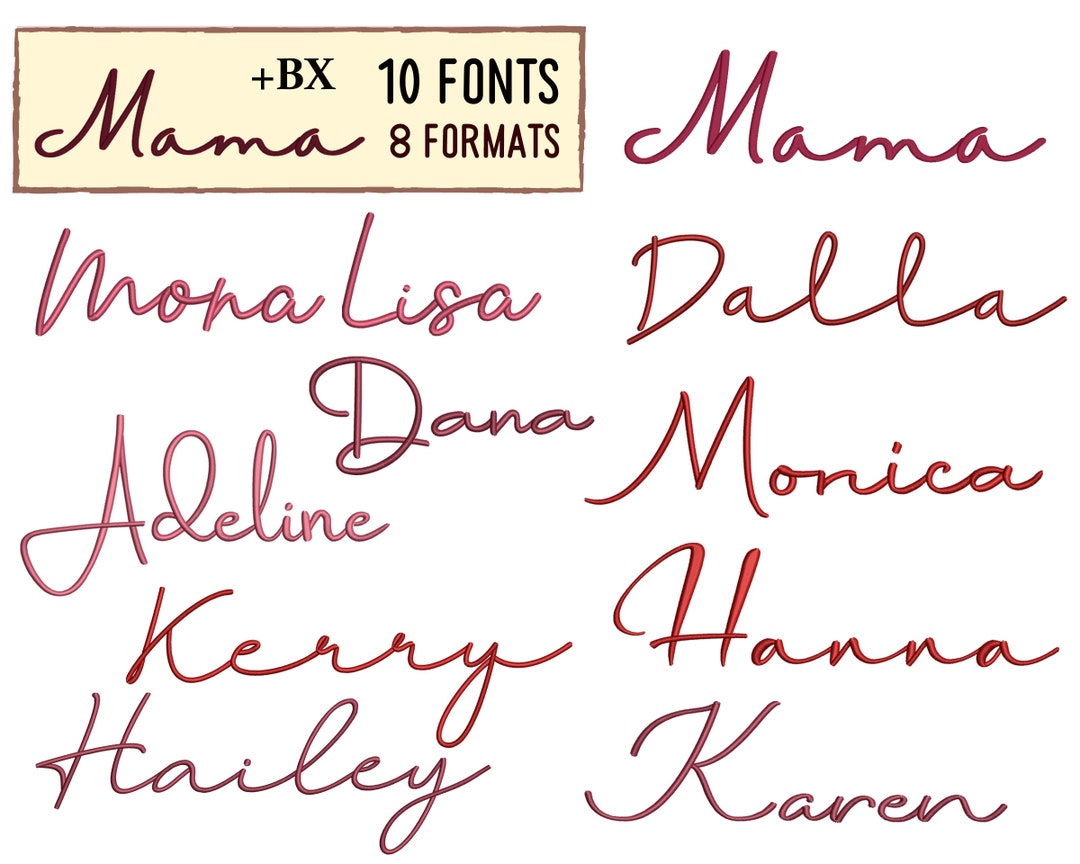 Mama +BX 10 FONTS
8 FORMATS
Mama
Mona Lisa
Dalla
Dana
Monica
Adeline
Hanna
Kerry
Hailey
Karen